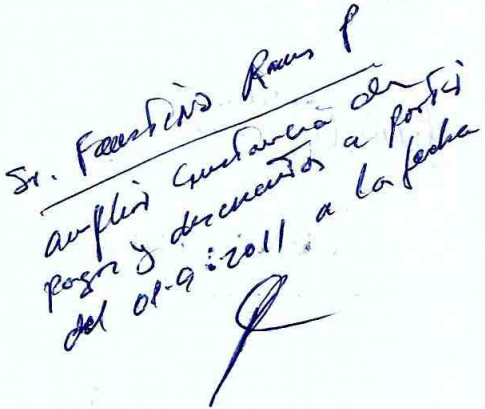 Sr. Faustino Ramos P
amplias constancia de
pagos y descuentos a partir
del 01-9-2011 a la fecha